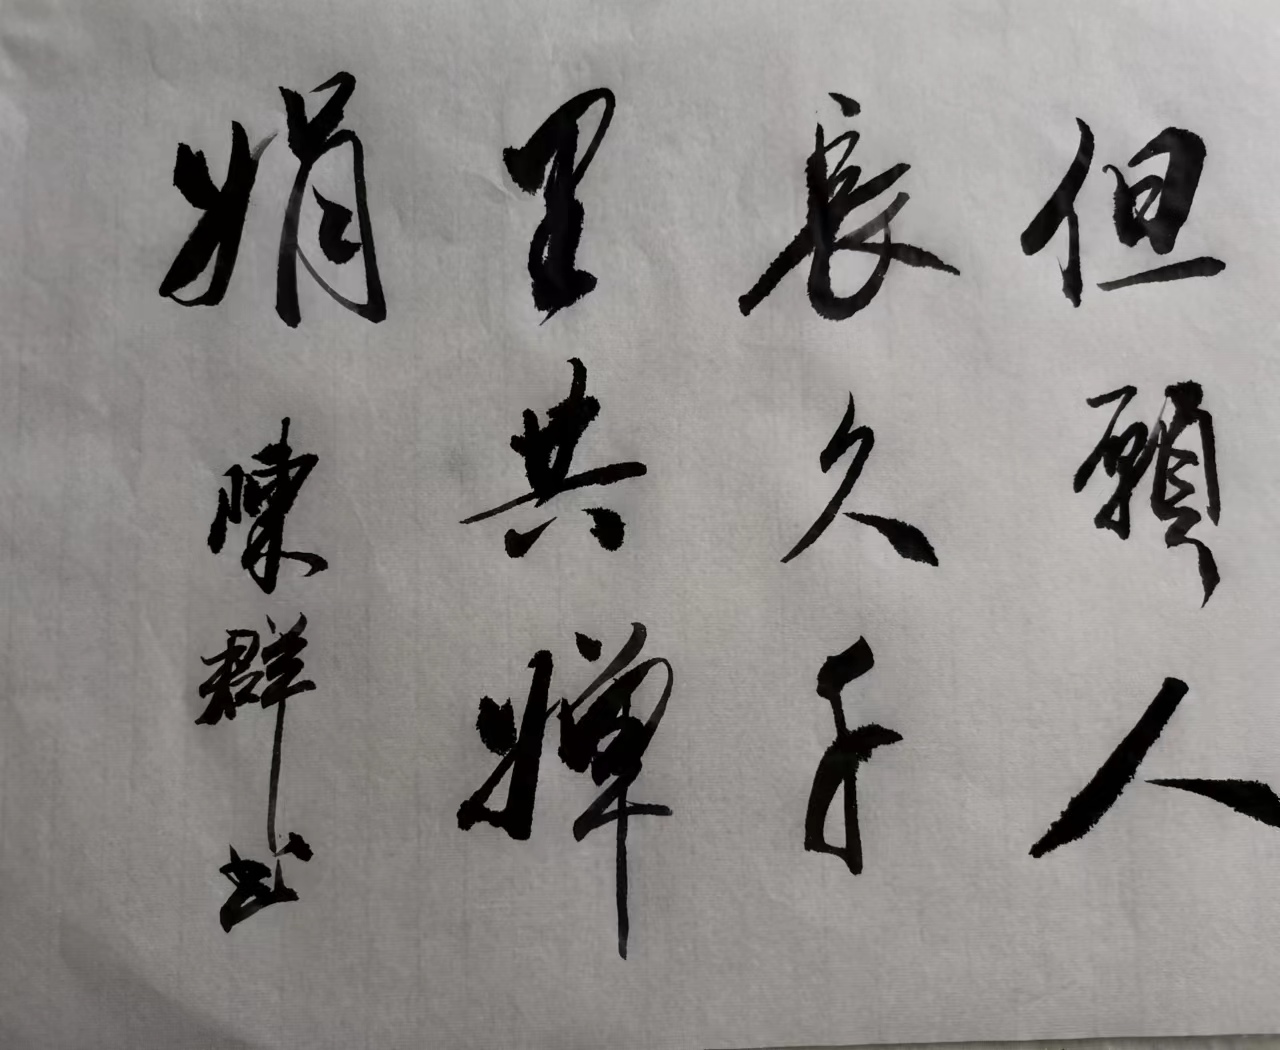 但願人
長久千
里共嬋
娟
陳群书